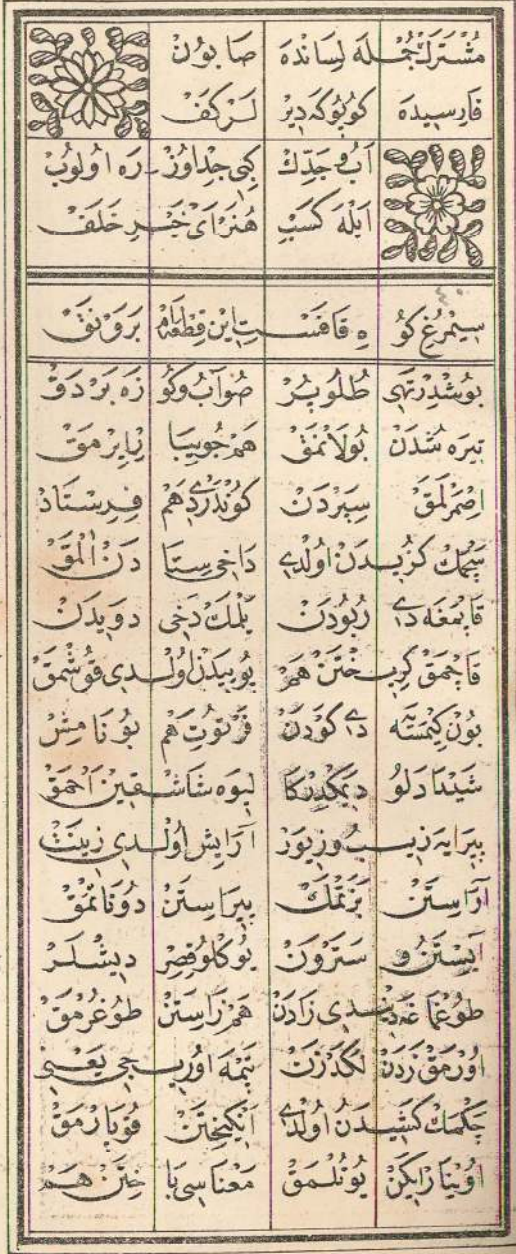 مشترك جمله لسانده صابون
فارسیده كوپوكه دیر لر كف
اب و جدك كبی جد اوزره اولوب
ایله كسب هنر ای خیر خلف
سیمرغ كوه قافست این قطعه بررونق
بوشدر تهی طلو پر صو آب و كوزه بردق
تیره شدن بولانمق هم جویبا ایرمق
اصمرلمق سپردن كوندردی هم فرستاد
سچمك كزیدن اولدی داخی ستادن المق
قاپمغه دی ربودن یلمك دخی دویدن
قاچمق كریختن هم پوییدن اولدی قوشمق
بون كیمسه یه دی كودن فرتوت هم بونامش
شیدا دلو دیمكدر كالیوه شاشقین احمق
پیرایه زیب و زیور آرایش اولدی زینت
آراستن بزتمك پیراستن دوناتمق
آبستن و سترون یوكلو قصر دیشلر
طوغماغه دندی زادن هم زاستن طوغرمق
اورمق زدن لكدزن تپمه اوریجی یعنی
چكمك كشیدن اولدی انكیختن قوپارمق
اوینار ایكن یوتلمق معناسی باختن هم